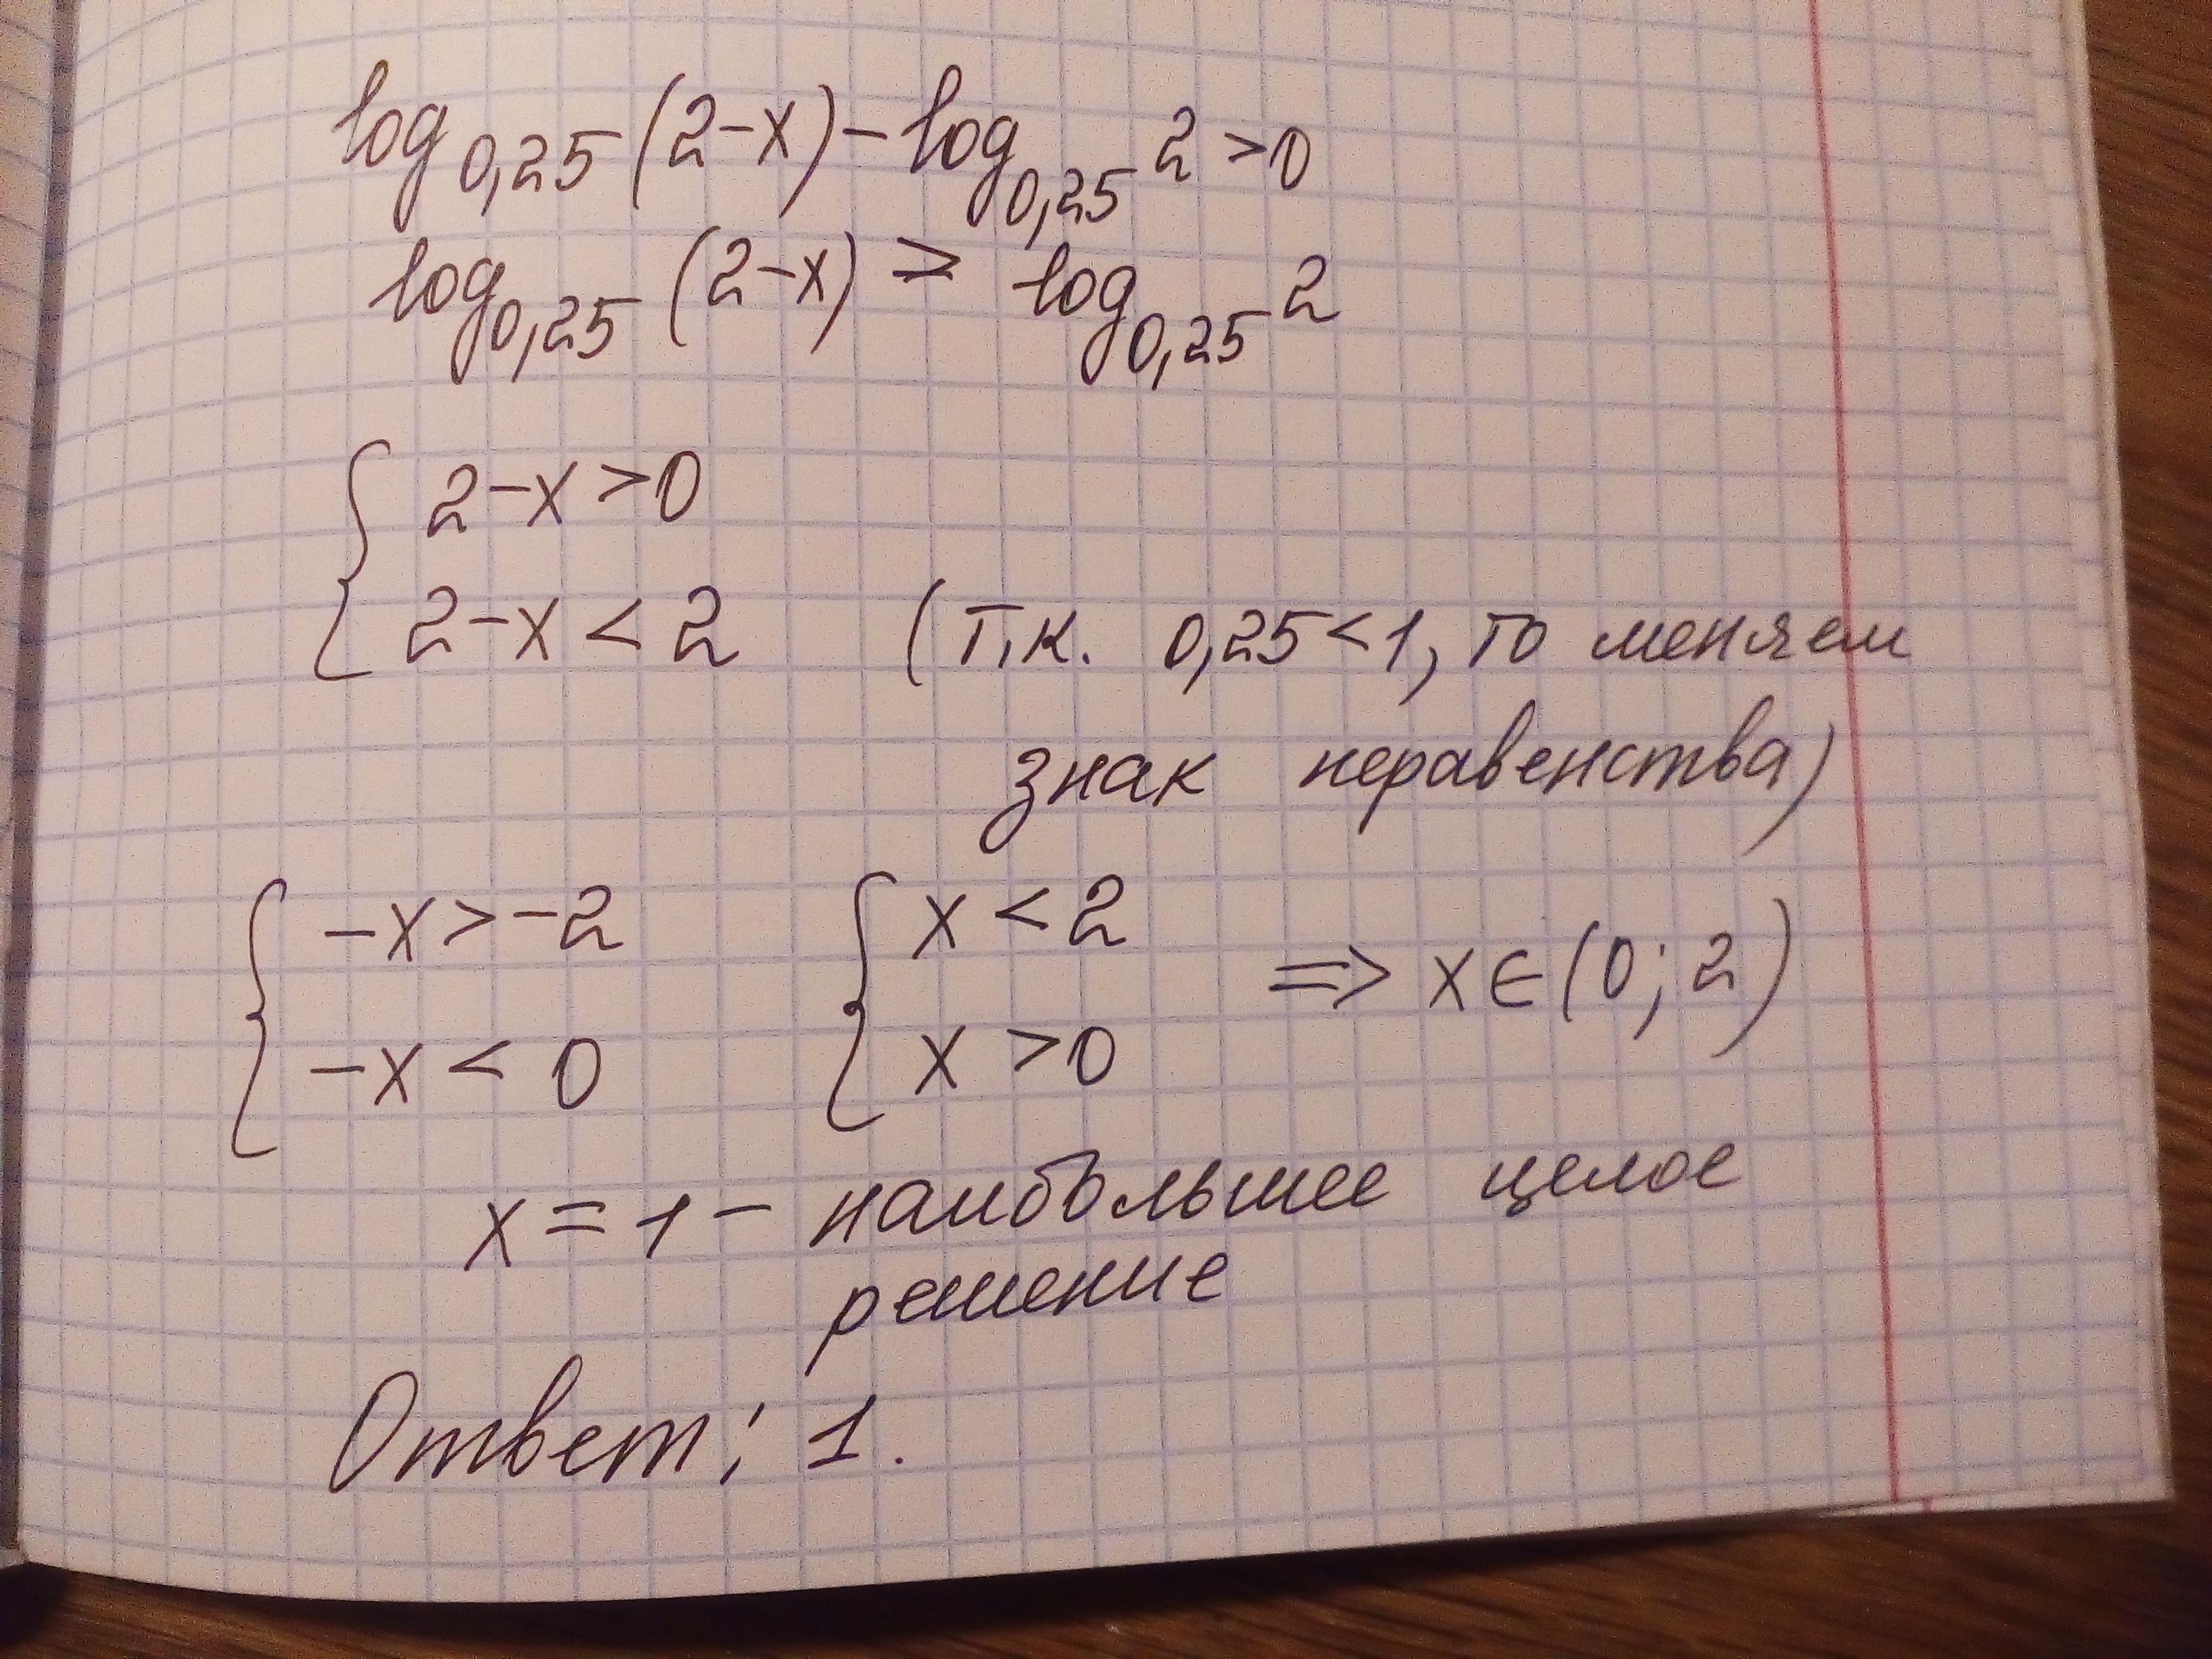 log₀,₂₅(2-x)-log₀,₂₅2>0
log₀,₂₅(2-x) > log₀,₂₅2
{ 2-x>0
2-x<2 (т.к. 0,25<1, то меняем
знак неравенства)
{ -x>-2 { x<2
-x<0 x>0 => x∈(0;2)
x=1- наибольшее целое
решение
Ответ: 1.